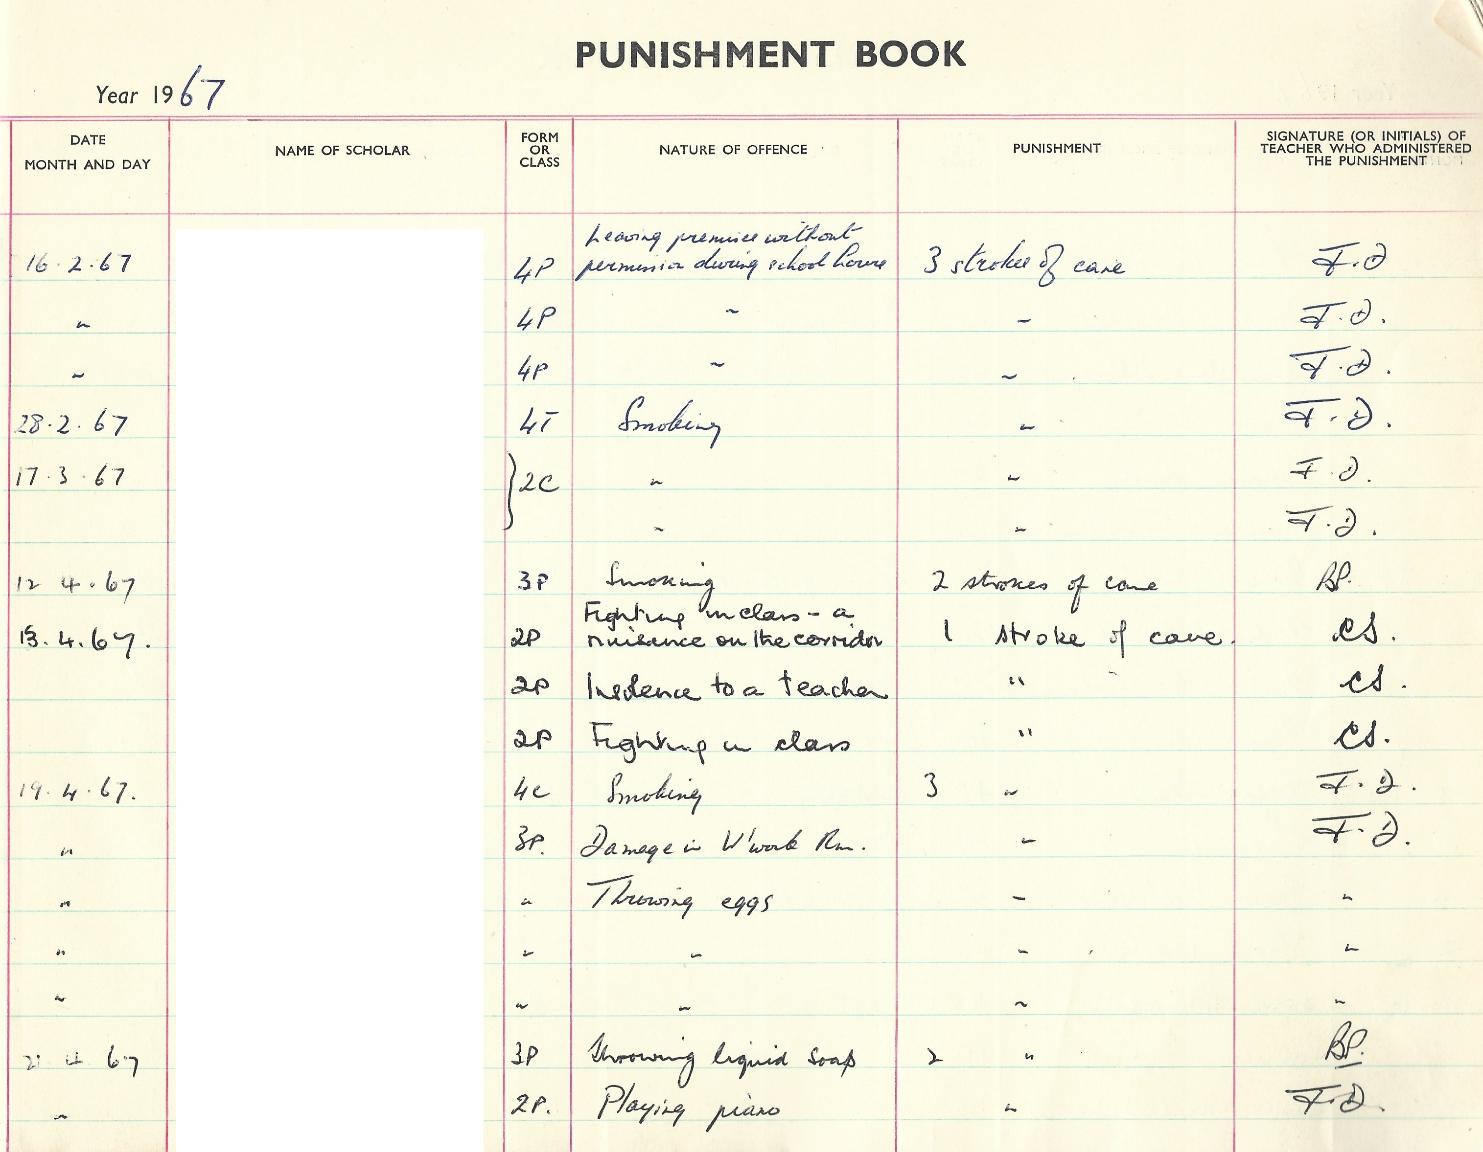 PUNISHMENT BOOK
Year 1967
DATE MONTH AND DAY NAME OF SCHOLAR FORM OR CLASS NATURE OF OFFENCE PUNISHMENT SIGNATURE (OR INITIALS) OF TEACHER WHO ADMINISTERED THE PUNISHMENT
Leaving premise without
16.2.67 4P permission during school hours 3 strokes of cane F.D
" 4P " " F.D.
" 4P " " F.D.
28.2.67 4T Smoking " F.D.
17.3.67 } 2C " " F.D.
" " F.D.
12 4.67 3P Smoking 2 strokes of cane BP.
Fighting in class - a
13.4.67. 2P nuisance on the corridor 1 stroke of cane. CS.
2P Insolence to a teacher " CS.
2P Fighting in class " CS.
19.4.67. 4C Smoking 3 " F.D.
" 3P. Damage in W'work Rm. " F.D.
" " Throwing eggs " "
" " " " "
" " " " "
21 4 67 3P throwing liquid soap 2 " BP.
" 2P. Playing piano " F.D.